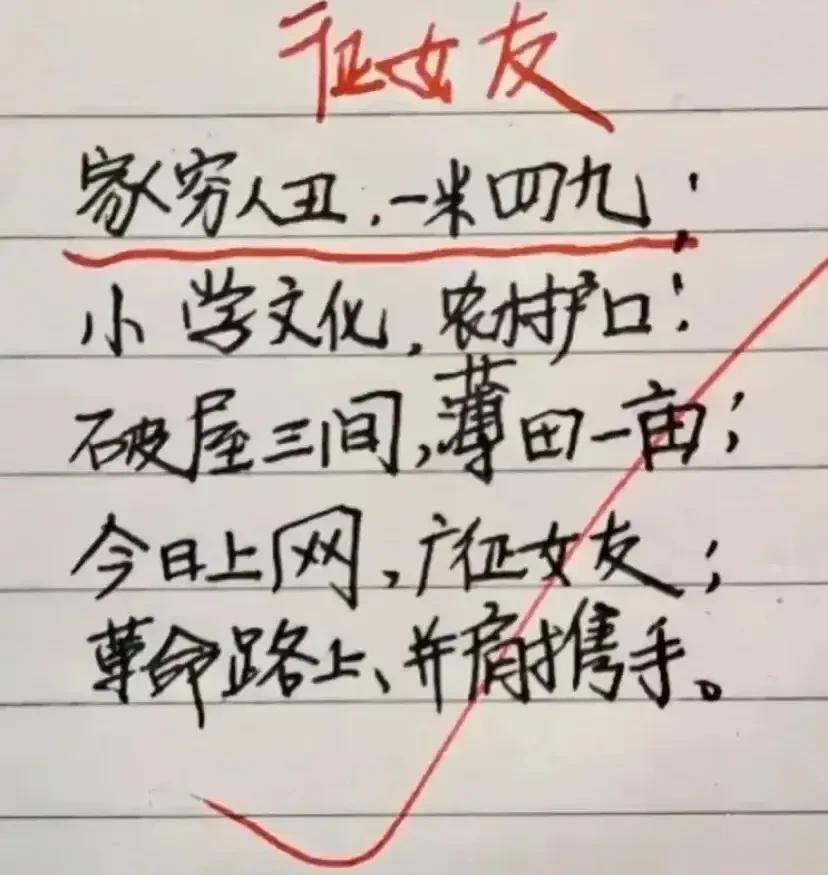 征女友
家穷人丑,一米四九;
小学文化,农村户口:
破屋三间,薄田一亩;
今日上网,广征女友;
革命路上、并肩携手。